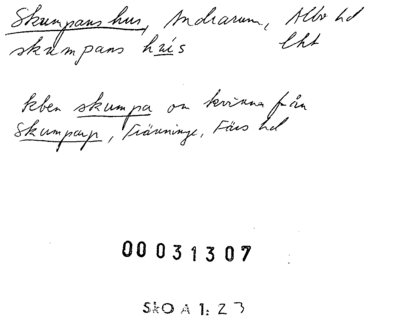 Skumpans hus, Andrarum, Albo hd
skumpans hus lht
kben skumpa on kvinna från
Skumparp, Tranninge, Färs hd
00031307
SkO A 1: 23